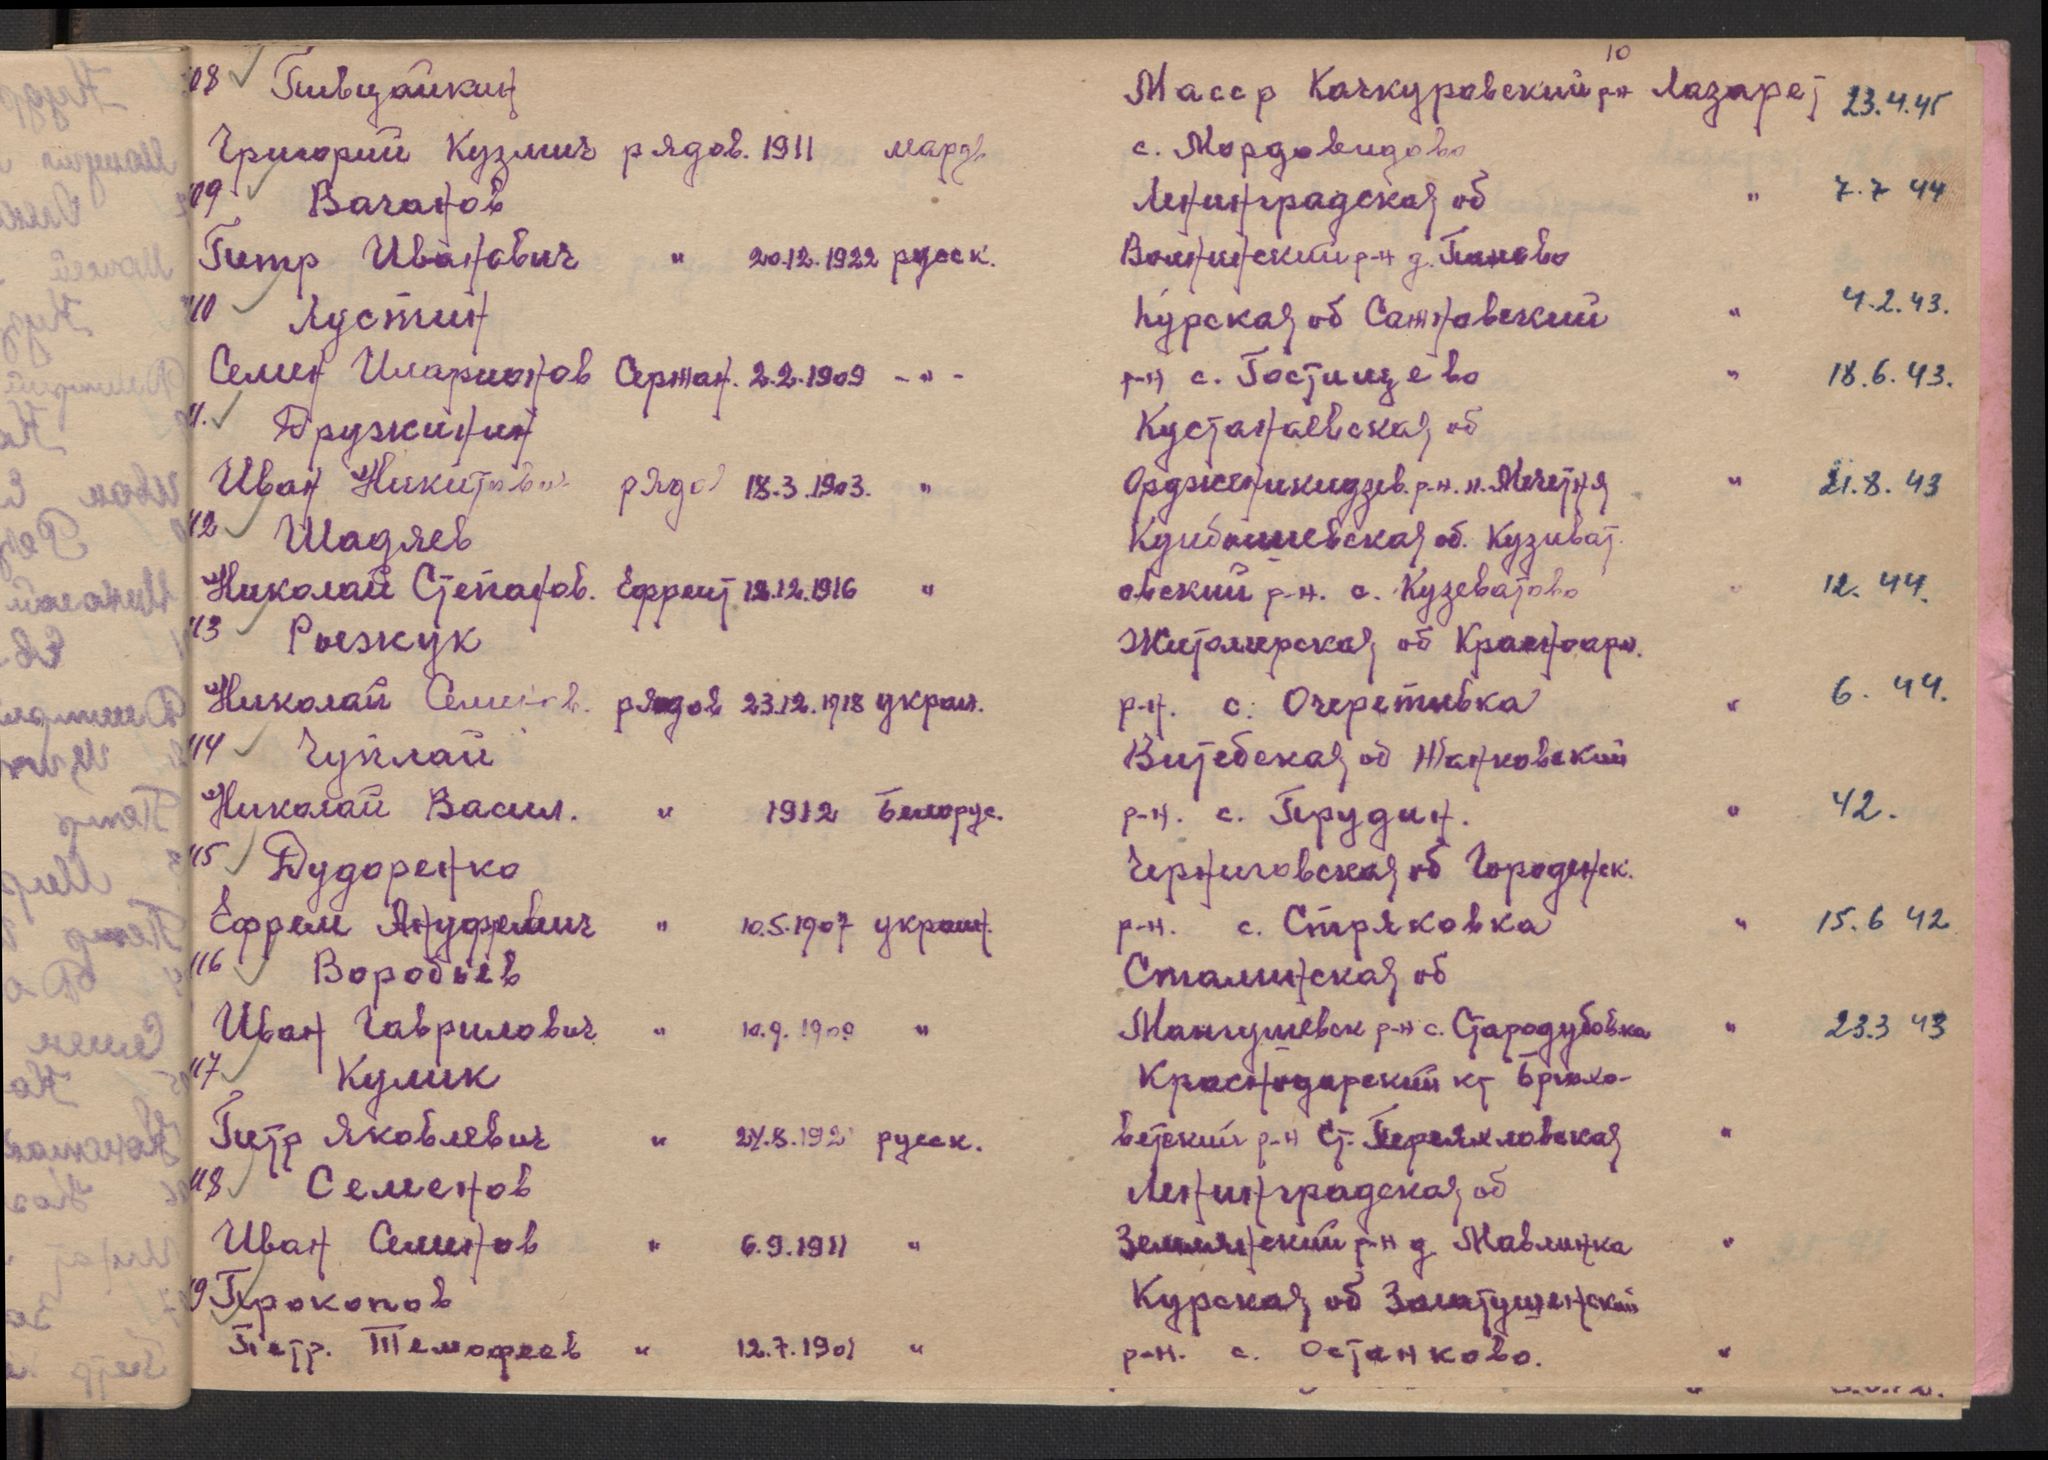 10
108 Пивцайкин Масср Качкуровский р-н Лазарет 23.4.45
Григорий Кузмич рядов. 1911 мардв с. Мордовидово
109 Вачанов Ленинградская об " 7.7 44
Петр Иванович " 20.12.1922 русск. р-н д. Паново
110 Лустин Курская об Сажновский " 4.2.43.
Семен Иларионов Сержан. 2.2.1909 -"- р-н с. Гостищево " 18.6.43.
11. Дружинин Кустанаевская об
Иван Никитович рядо 18.3.1903. " Ордженикидзев. р-н. н. Мечетня " 21.8.43
112 Шадяев Куибашевская об. Кузиват.
Николай Степанов. Ефреит 12.1916 " овский р-н. с. Кузеватово " 12. 44.
113 Рыежук Житомирская об Красноарм.
Николай Семенов. рядов 23.12.1918 украин. р-н. с. Очеретивка " 6. 44.
114 Чуплай Витебская об Жанковский
Николай Васил. " 1912 Белорус. р-н. с. Прудин. " 42.
115 Дудоренко Черниговская об Городенск.
Ефрем Ануфревич " 10.5.1907 украин. р-н. с. Стряковка " 15.6 42
116 Воробьев Сталинская об
Иван Гаврилович " 10.9.1909 " Мангушевск р-н с. Стародубовка " 23.3 43
117 Кулик Краснодарский кт Брюхо-
Петр Яковлевич " русск. ветский р-н Ст. Переяхловская "
118 Семенов Ленинградская об
Иван Семенов " 6.9.1911 " р-н д. Мавлинка "
19 Прокопов Курская об Залатушенский
Петр. Темофеев " 12.7.1901 " р-н. с. Останково. "